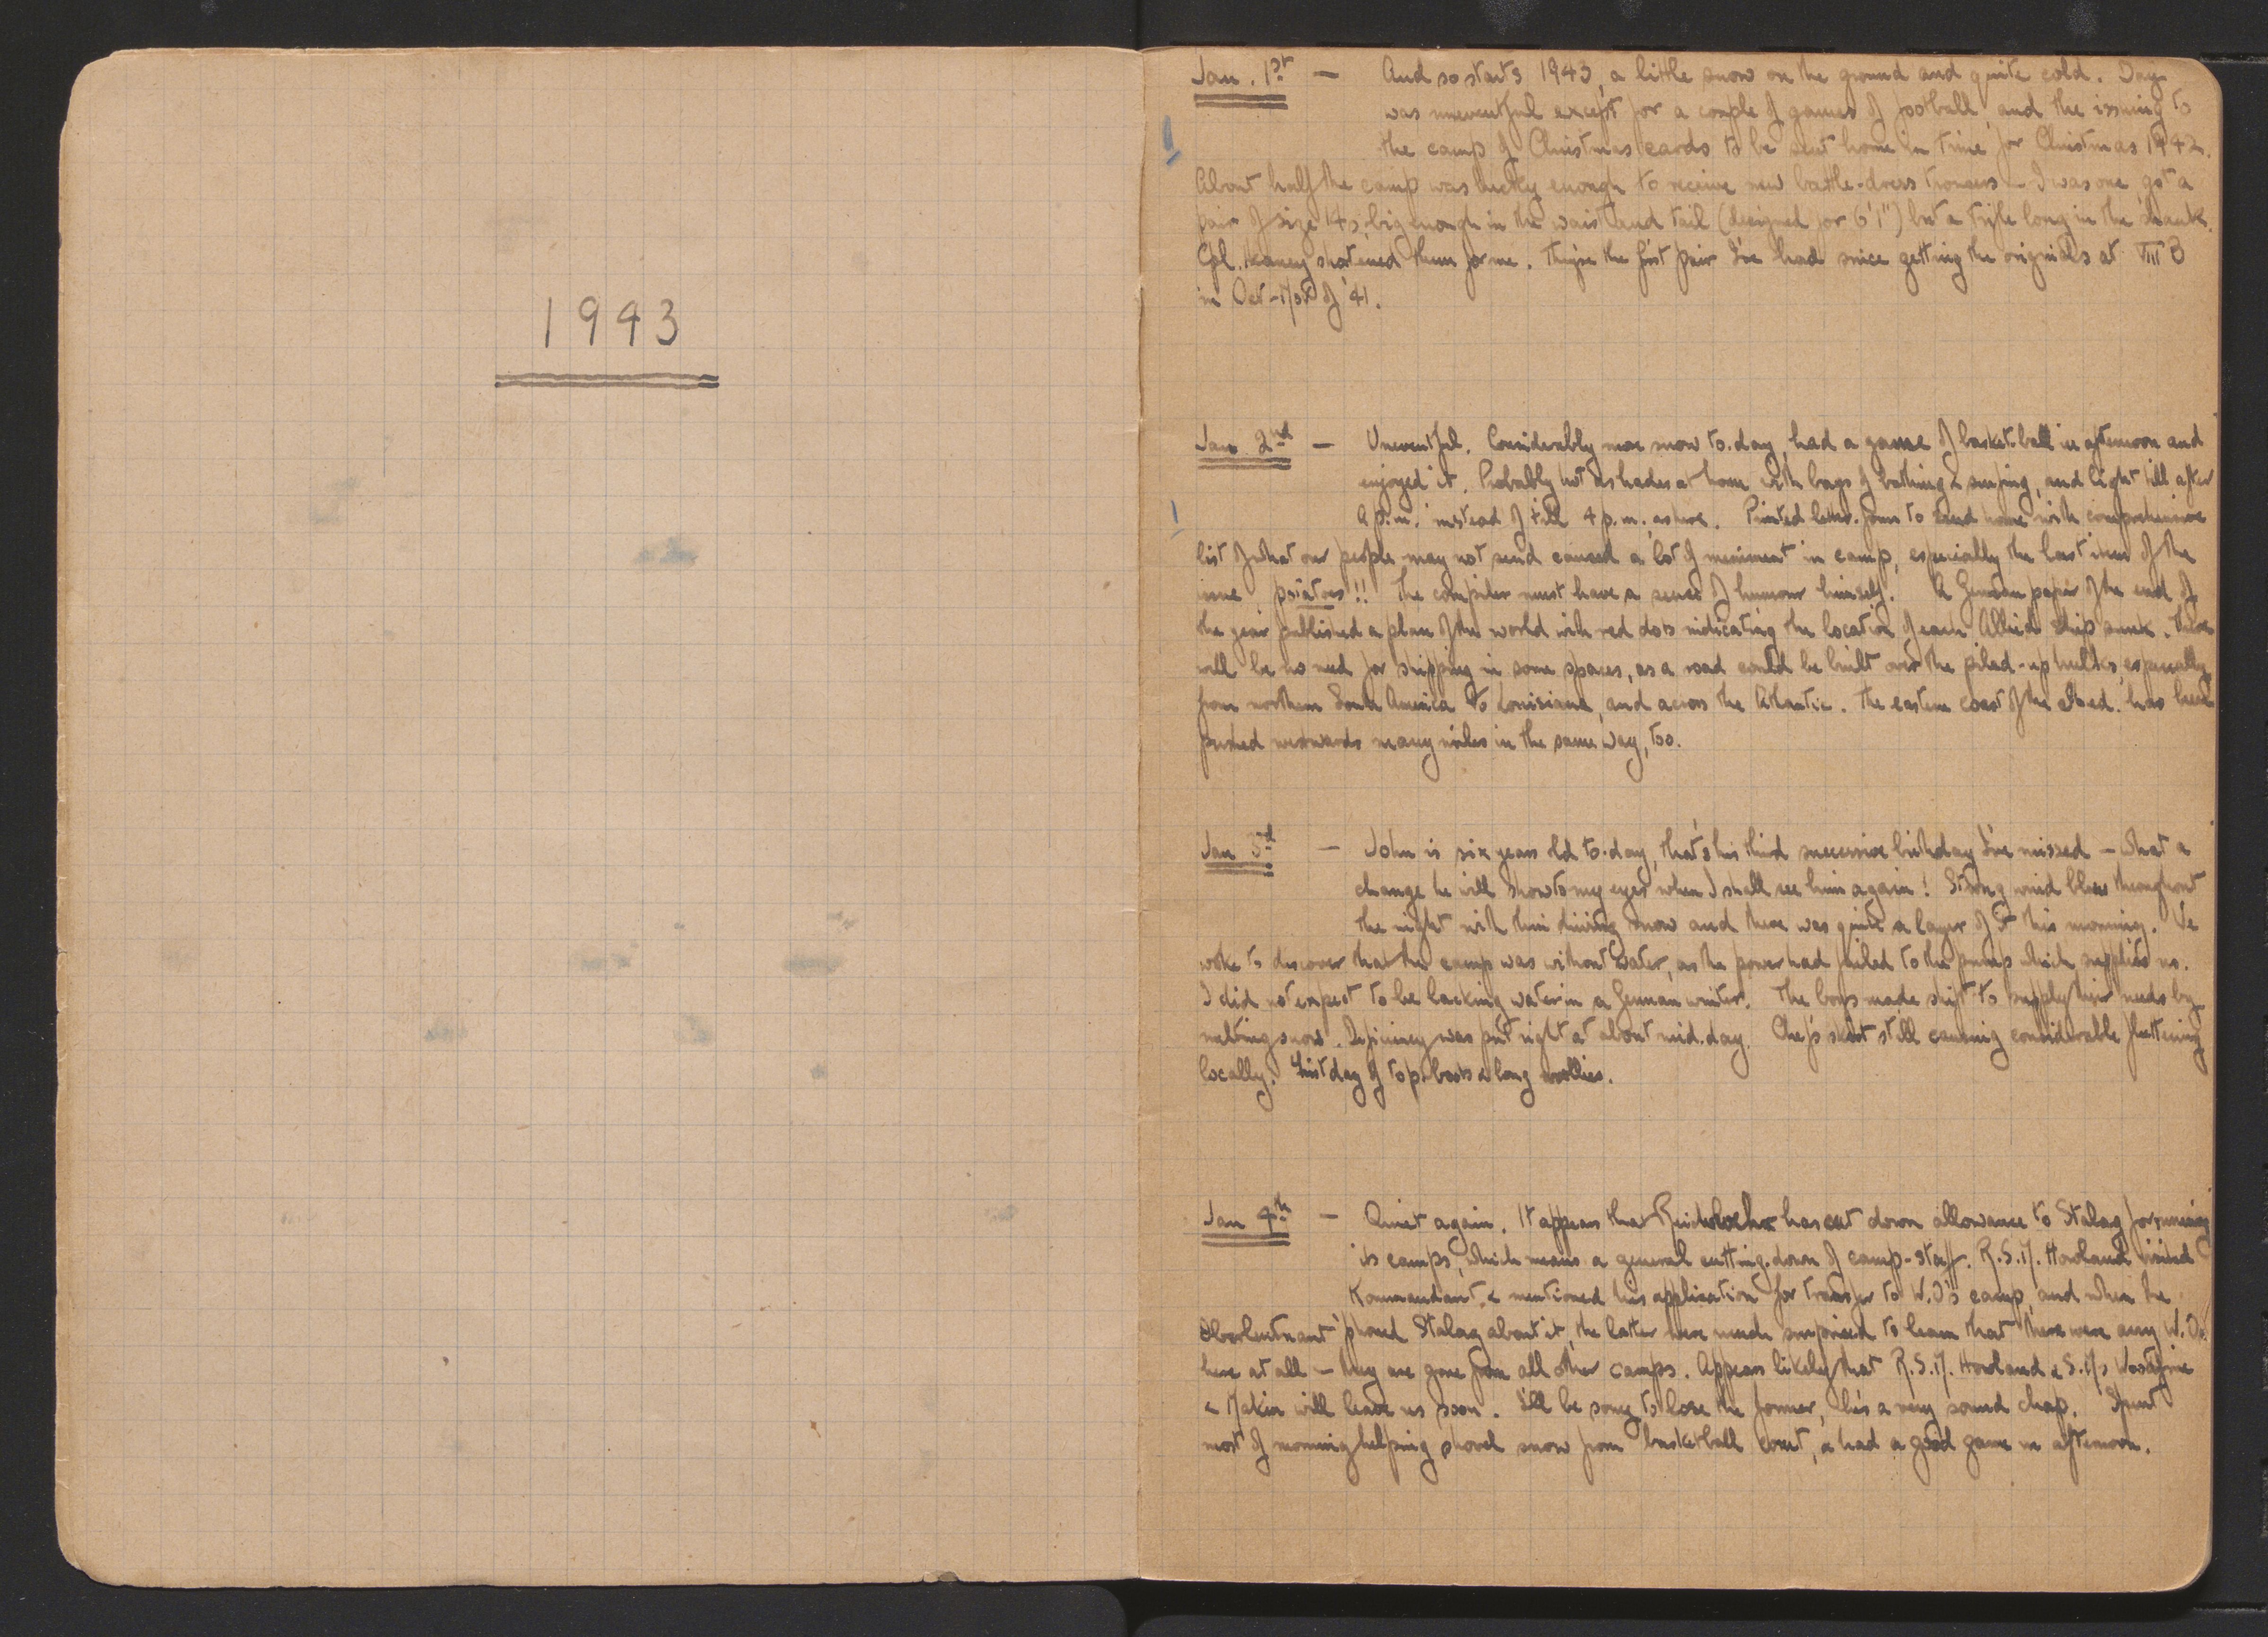 1943
Jan. 1st — And so starts 1943, a little snow on the ground and quite cold. Day
was uneventful except for a couple of games of football, and the issuing to
the camp of Christmas cards to be sent home in time for Christmas 1942.
About half the camp was lucky enough to receive new battle-dress trousers — I was one, got a
pair of size 14s, big enough in the waist and tail (designed for 6'1") but a trifle long in the shank.
Cpl. shortened them for me. They're the first pair I've had since getting the originals at VIII B
in Oct-Nov of '41.
Jan 2nd — Uneventful. Considerably more snow to-day, had a game of basket-ball in afternoon and
enjoyed it. Probably hot as hades at home with bags of bathing & surfing, and light till after
p.m. instead of till 4 p.m. as here. Printed letter-form to send home with comprehensive
list of what our people may not send caused a lot of merriment in camp, especially the last item of the
issue potatoes!! The compiler must have a sense of humour himself. A German paper of the end of
the year published a plan of the world with red dots indicating the location of each Allied ship sunk. There
will be no need for shipping in some spaces, as a road could be built over the piled-up hulks, especially
from northern South America to Louisiana, and across the Atlantic. The eastern coast of the has been
pushed westwards many miles in the same way, too.
Jan 3rd — John is six years old to-day, that's his third successive birthday I've missed — what a
change he will show to my eyes when I shall see him again! Strong wind blew throughout
the night with thin driving snow and there was quite a layer of it this morning. We
woke to discover that the camp was without water, as the power had failed to the pump which supplies us.
I did not expect to be lacking water in a German winter. The boys made shift to supply their needs by
melting snow. Deficiency was put right at about mid-day. still causing considerable
locally. First day of top-boots & long woollies.
Jan 4th — Quiet again. It appears that has cut down allowance to Stalag for running
its camps, which means a general cutting-down of camp-staff. R.S.M. Howland visited
Kommandant & mentioned his application for transfer to W.O's camp, and when the
Oberleutnant 'phoned Stalag about it, the latter were much surprised to learn that there were any W.Os
here at all — they are gone from all other camps. Appears likely that R.S.M. Howland & S.Ms
& Makin will leave us soon. I'll be sorry to lose the former, he's a very sound chap. Spent
most of morning helping shovel snow from basketball court, & had a good game in afternoon.